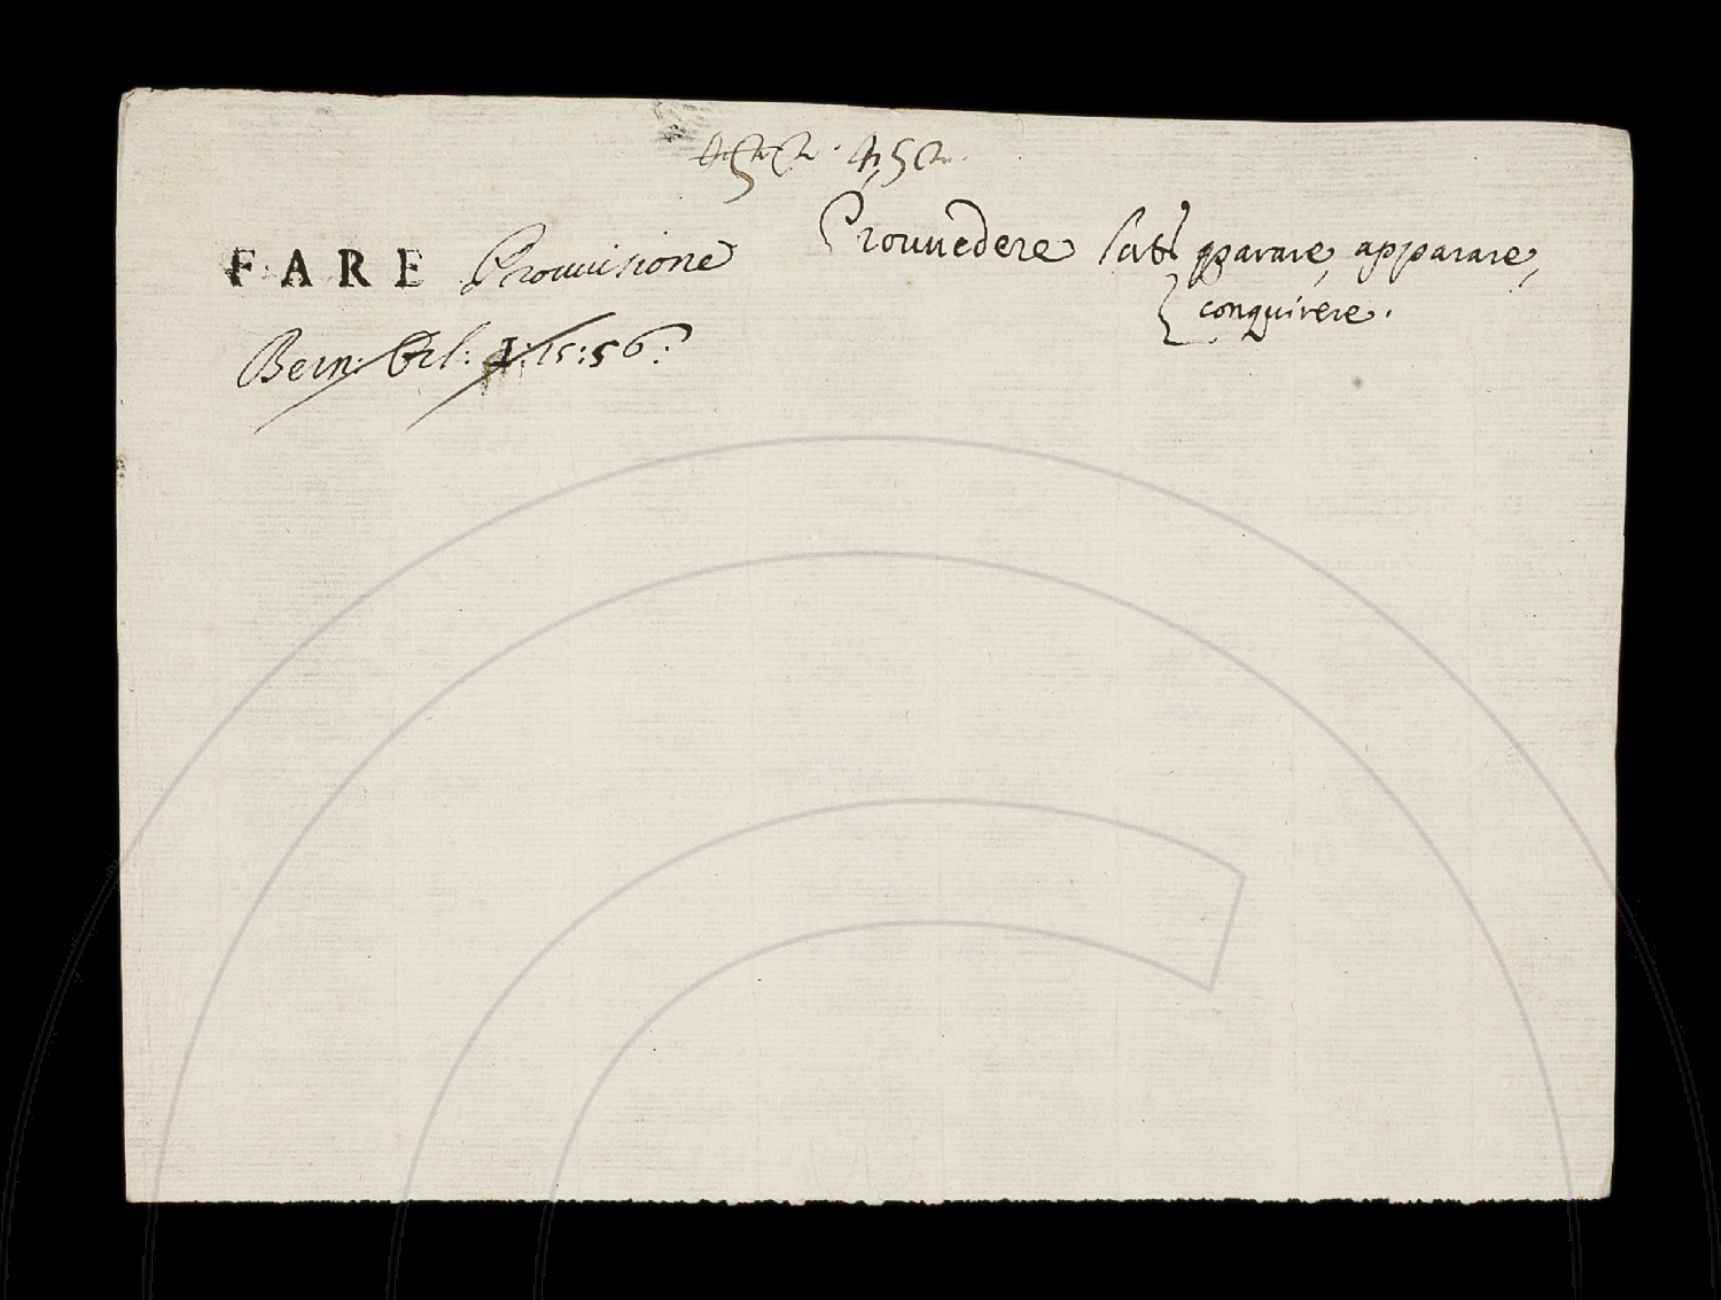 452
FARE Prouuisione
Prouuedere lat. pparare, apparare,
conquirere.
Bern: Orl: 1:15:56: